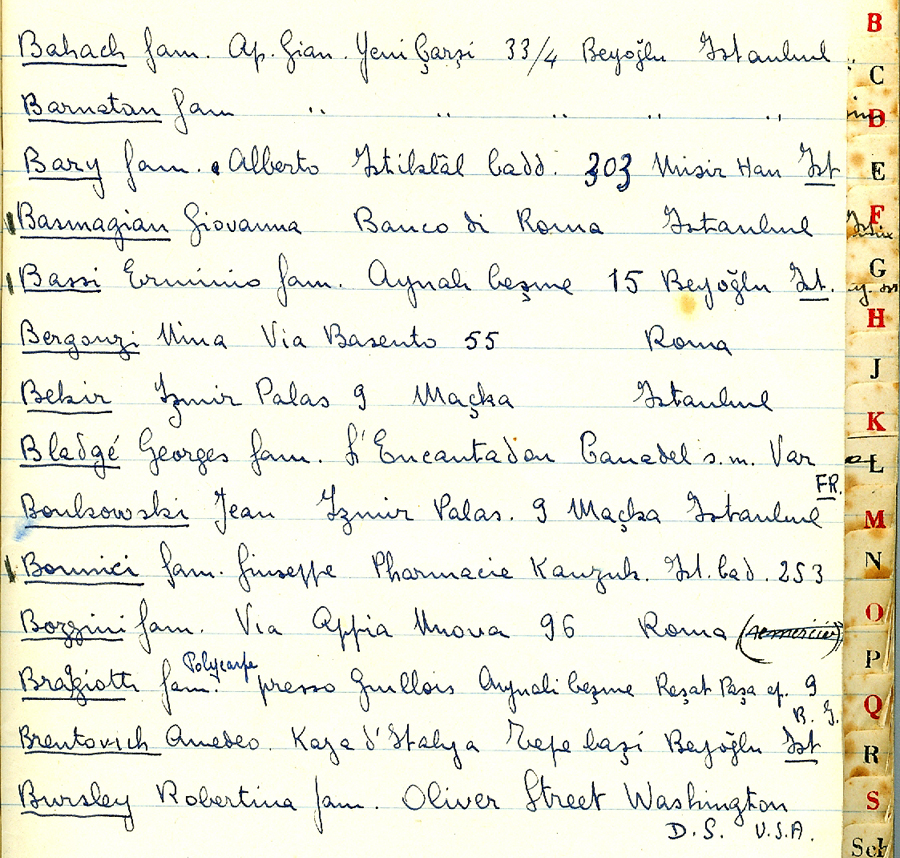 Bahach fam. Ap. Gian. Yeni Çarşi 33/4 Beyoğlu Istanbul
Barnatan fam " " " " "
Bary fam. Alberto Istiklâl Cadd. 303 Misir Han Ist
Basmagian Giovanna Banco di Roma Istanbul
Bassi Erminio fam. Aynali Ceşme 15 Beyoğlu Ist.
Bergonzi Nina Via Basento 55 Roma
Bekir Izmir Palas 9 Maçka Istanbul
Bladgé Georges fam. L'Encantadou Canadel s.m. Var
FR.
Boukowski Jean Izmir Palas. 9 Maçka Istanbul
Bonnici fam. Giuseppe Pharmacie Kanzuk. Ist. Cad. 253
Bozzini fam. Via Appia Nuova 96 Roma (remercier)
Polycarpe
Bragiotti fam. presso Guillois Aynali Ceşme Reşat Paşa ap. 9
B. I.
Brentovich Amedeo. Kaza d'Italya Tepe başi Beyoğlu Ist
Bursley Robertina fam. Oliver Street Washington
D.S. U.S.A.
B
C
D
E
F
G
H
J
K
L
M
N
O
P
Q
R
S
Sch